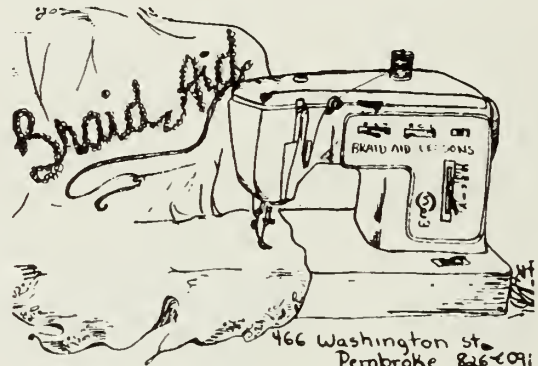 Braid Aid
BRAID AID LESSONS
466 Washington st.
Pembroke 826-6091